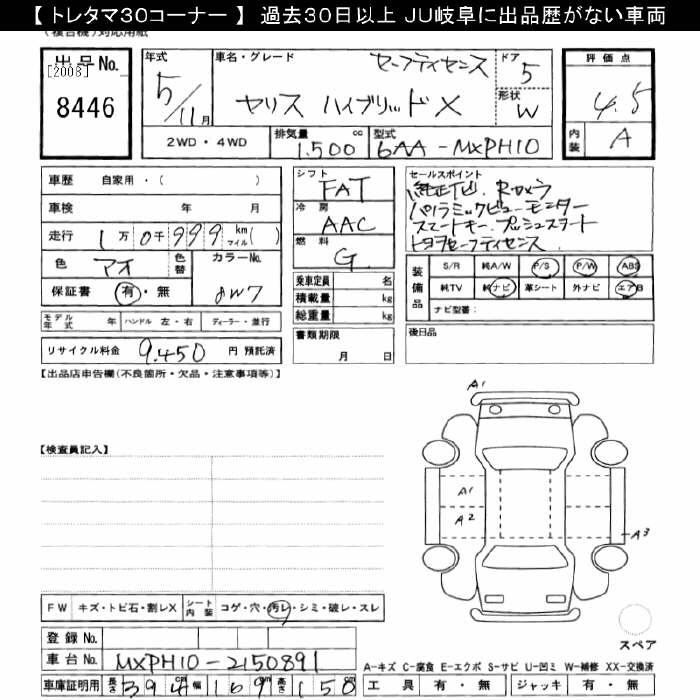 【 トレタマ30コーナー 】 過去30日以上 JU岐阜に出品歴がない車両
(複合機)対応用紙
出品No.
[2008]
8446
年式
5/11月
車名・グレード
セーフティセンス
ヤリス ハイブリッドX
ドア
5
形状
W
評価点
4.5
内装
A
2WD・4WD
排気量 1,500 cc
型式 6AA-MXPH10
車歴 自家用・( )
車検 年 月
走行 1万0千999 km マイル( )
色 アオ
色替
カラーNo. 8W7
保証書 有・無
モデル年式 年 ハンドル 左・右 ディーラー・並行
リサイクル料金 9,450 円 預託済
シフト FAT
冷房 AAC
燃料 G
乗車定員 名
積載量 kg
総重量 kg
書類期限
月 日
セールスポイント
純正ナビ、Rカメラ
パノラミックビューモニター
スマートキー、プッシュスタート
トヨタセーフティセンス
装備品
S/R 純A/W P/S P/W ABS
純TV 純ナビ 革シート 外ナビ エアB
ナビ型番:
後日品
【出品店申告欄(不良箇所・欠品・注意事項等)】
【検査員記入】
A1
A1
A2
A3
スペア
FW キズ・トビ石・割レX シート内装 コゲ・穴・汚レ・シミ・破レ・スレ
登録No.
車台No. MXPH10-2150891
車庫証明用 長さ 394cm 幅 169cm 高さ 150cm
A-キズ C-腐食 E-エクボ S-サビ U-凹ミ W-補修 XX-交換済
工具 有・無 ジャッキ 有・無